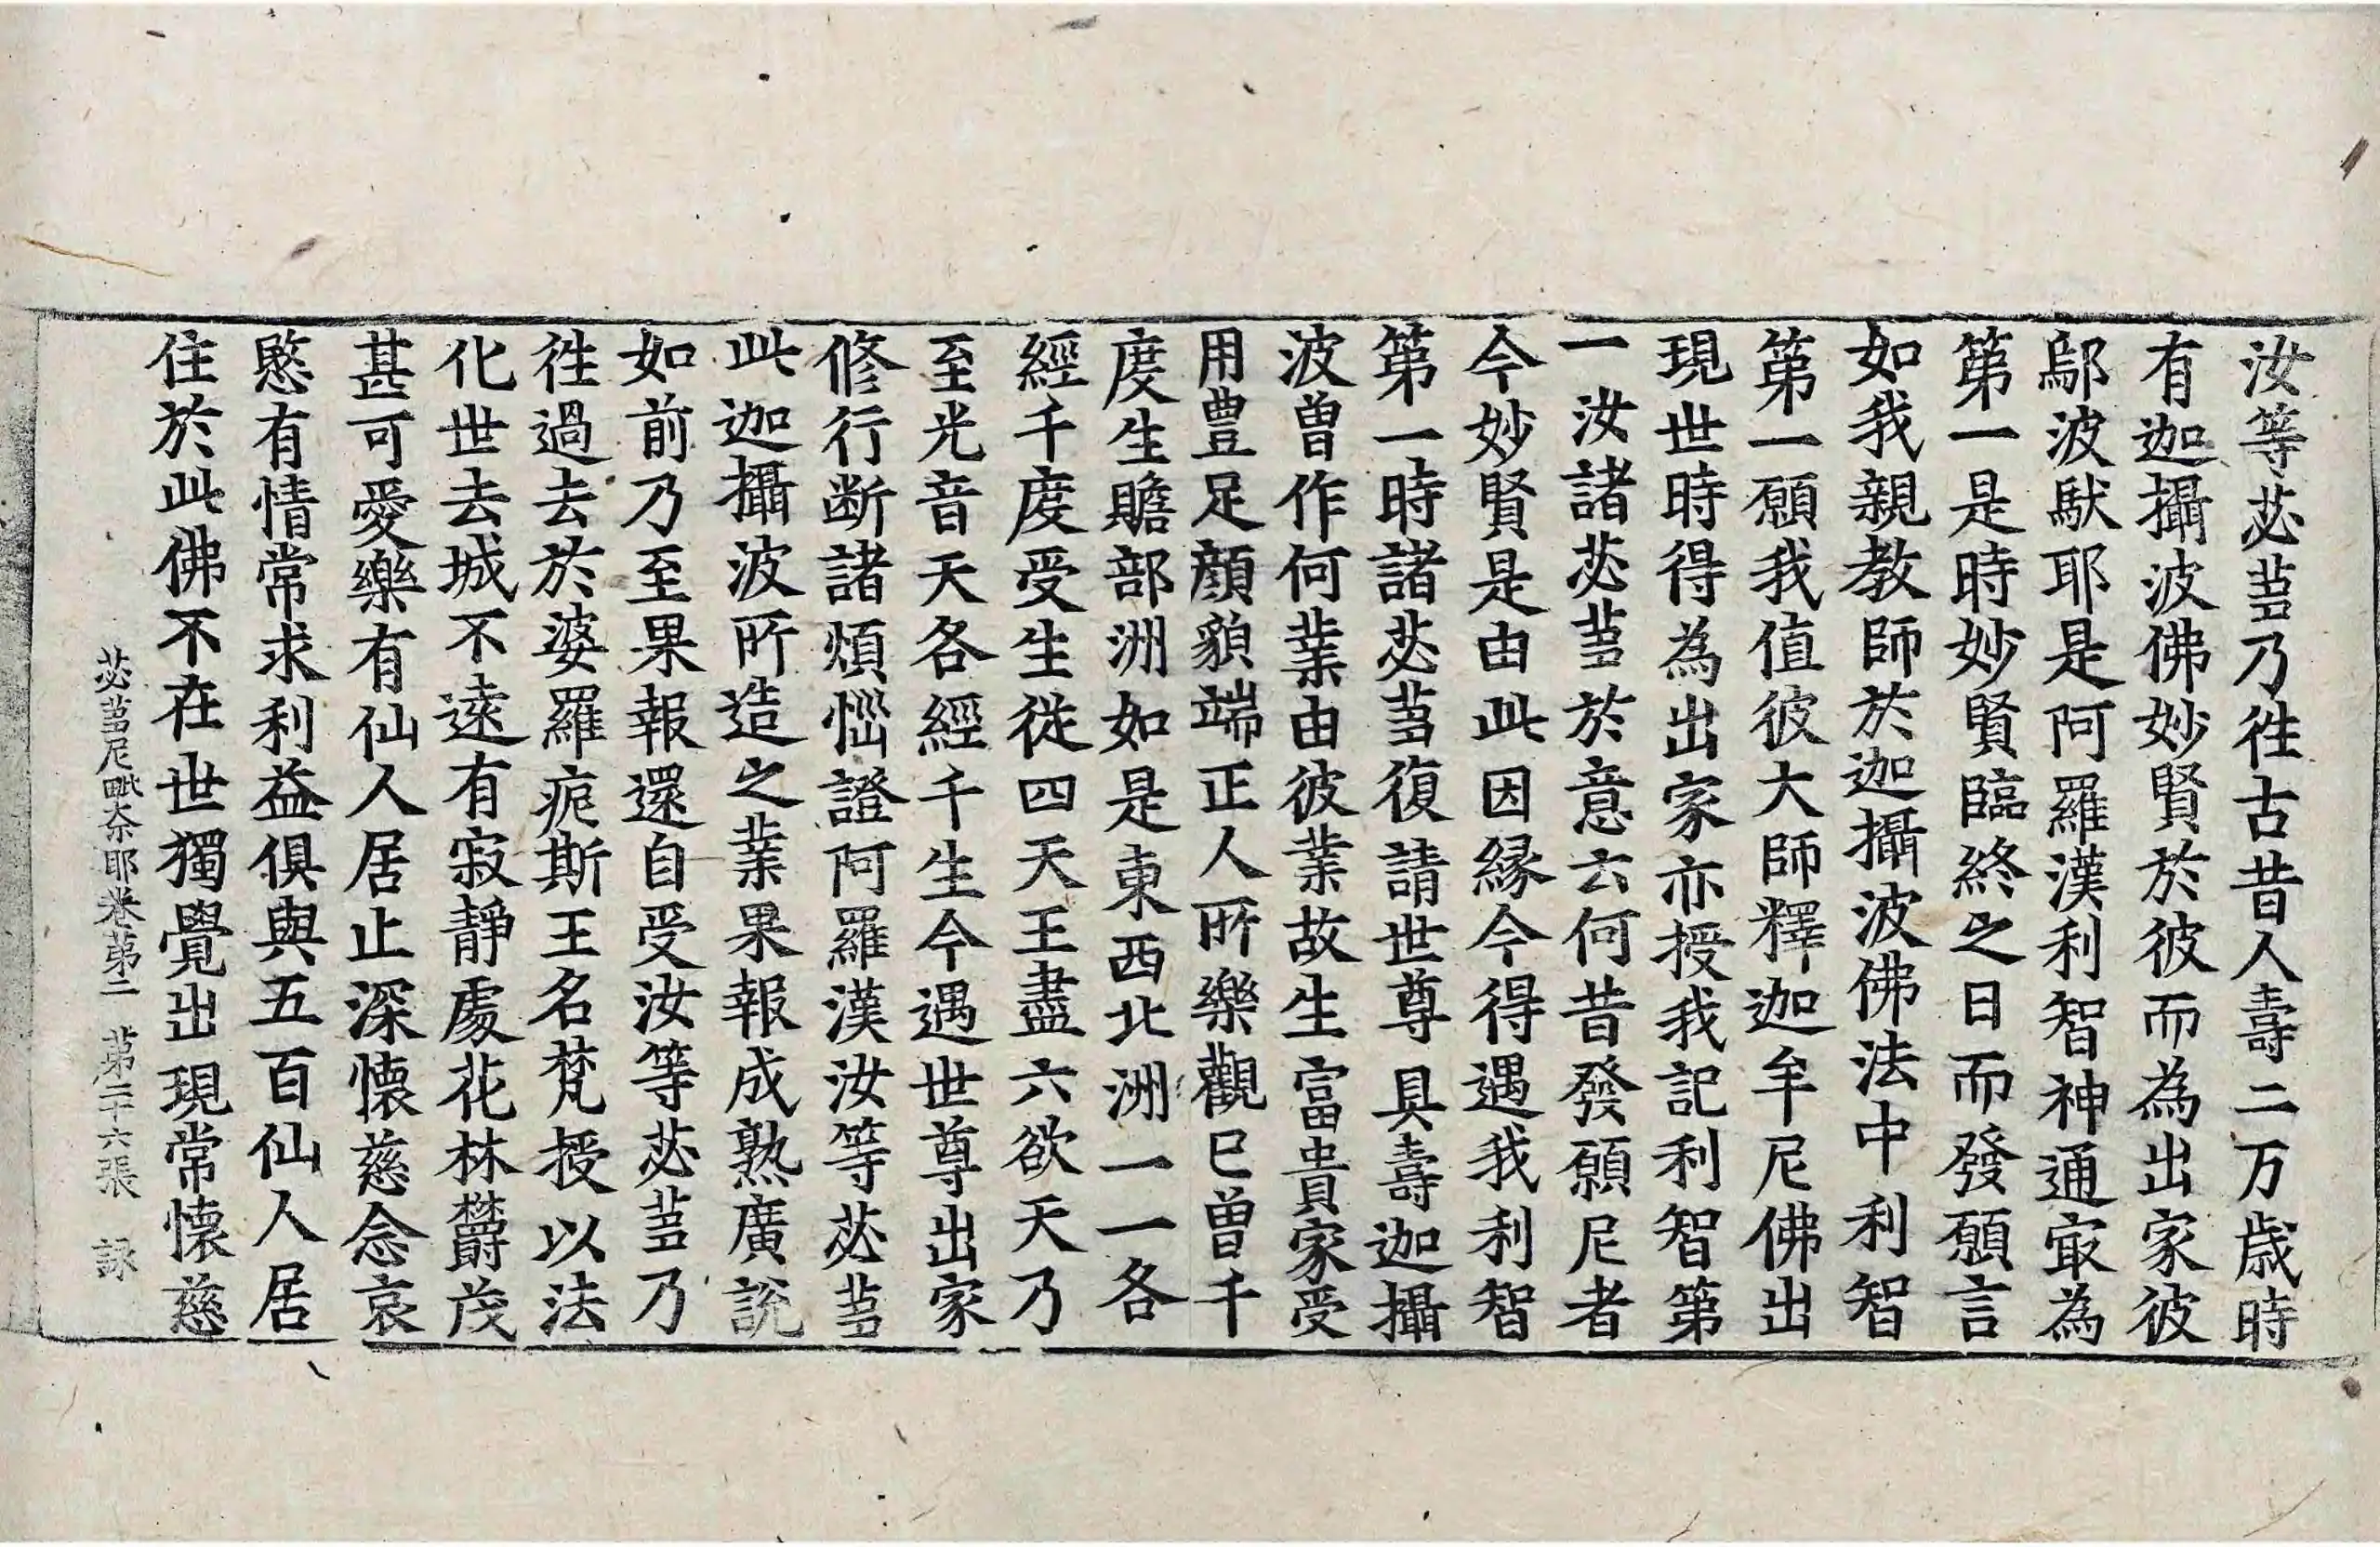 汝等苾蒭乃徃古昔人壽二万歳時
有迦攝波佛妙賢於彼而為出家彼
鄔波馱耶是阿羅漢利智神通㝡為
第一是時妙賢臨終之日而發願言
如我親教師於迦攝波佛法中利智
第一願我值彼大師釋迦牟尼佛出
現世時得為出家亦授我記利智第
一汝諸苾蒭於意云何昔發願尼者
今妙賢是由此因緣今得遇我利智
第一時諸苾蒭復請世尊具壽迦攝
波曾作何業由彼業故生富貴家受
用豊足顔貌端正人所樂觀巳曾千
度生贍部洲如是東西北洲一一各
經千度受生從四天王盡六欲天乃
至光音天各經千生今遇世尊出家
修行斷諸煩惱證阿羅漢汝等苾蒭
此迦攝波所造之業果報成熟廣說
如前乃至果報還自受汝等苾蒭乃
徃過去於婆羅痆斯王名梵授以法
化世去城不遠有寂靜處花林欝茂
甚可愛樂有仙人居止深懷慈念哀
愍有情常求利益俱與五百仙人居
住於此佛不在世獨覺出現常懷慈
苾蒭尼毗奈耶卷第二 第二十六張 詠